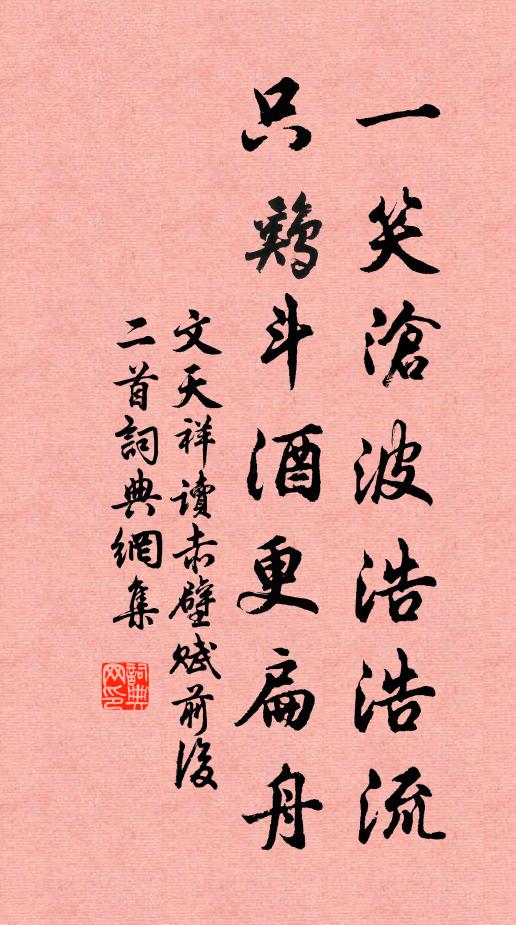 一笑滄波浩浩流
只鷄斗酒更扁舟
文天祥讀赤壁賦前後
二首詞典網集
詞典網印